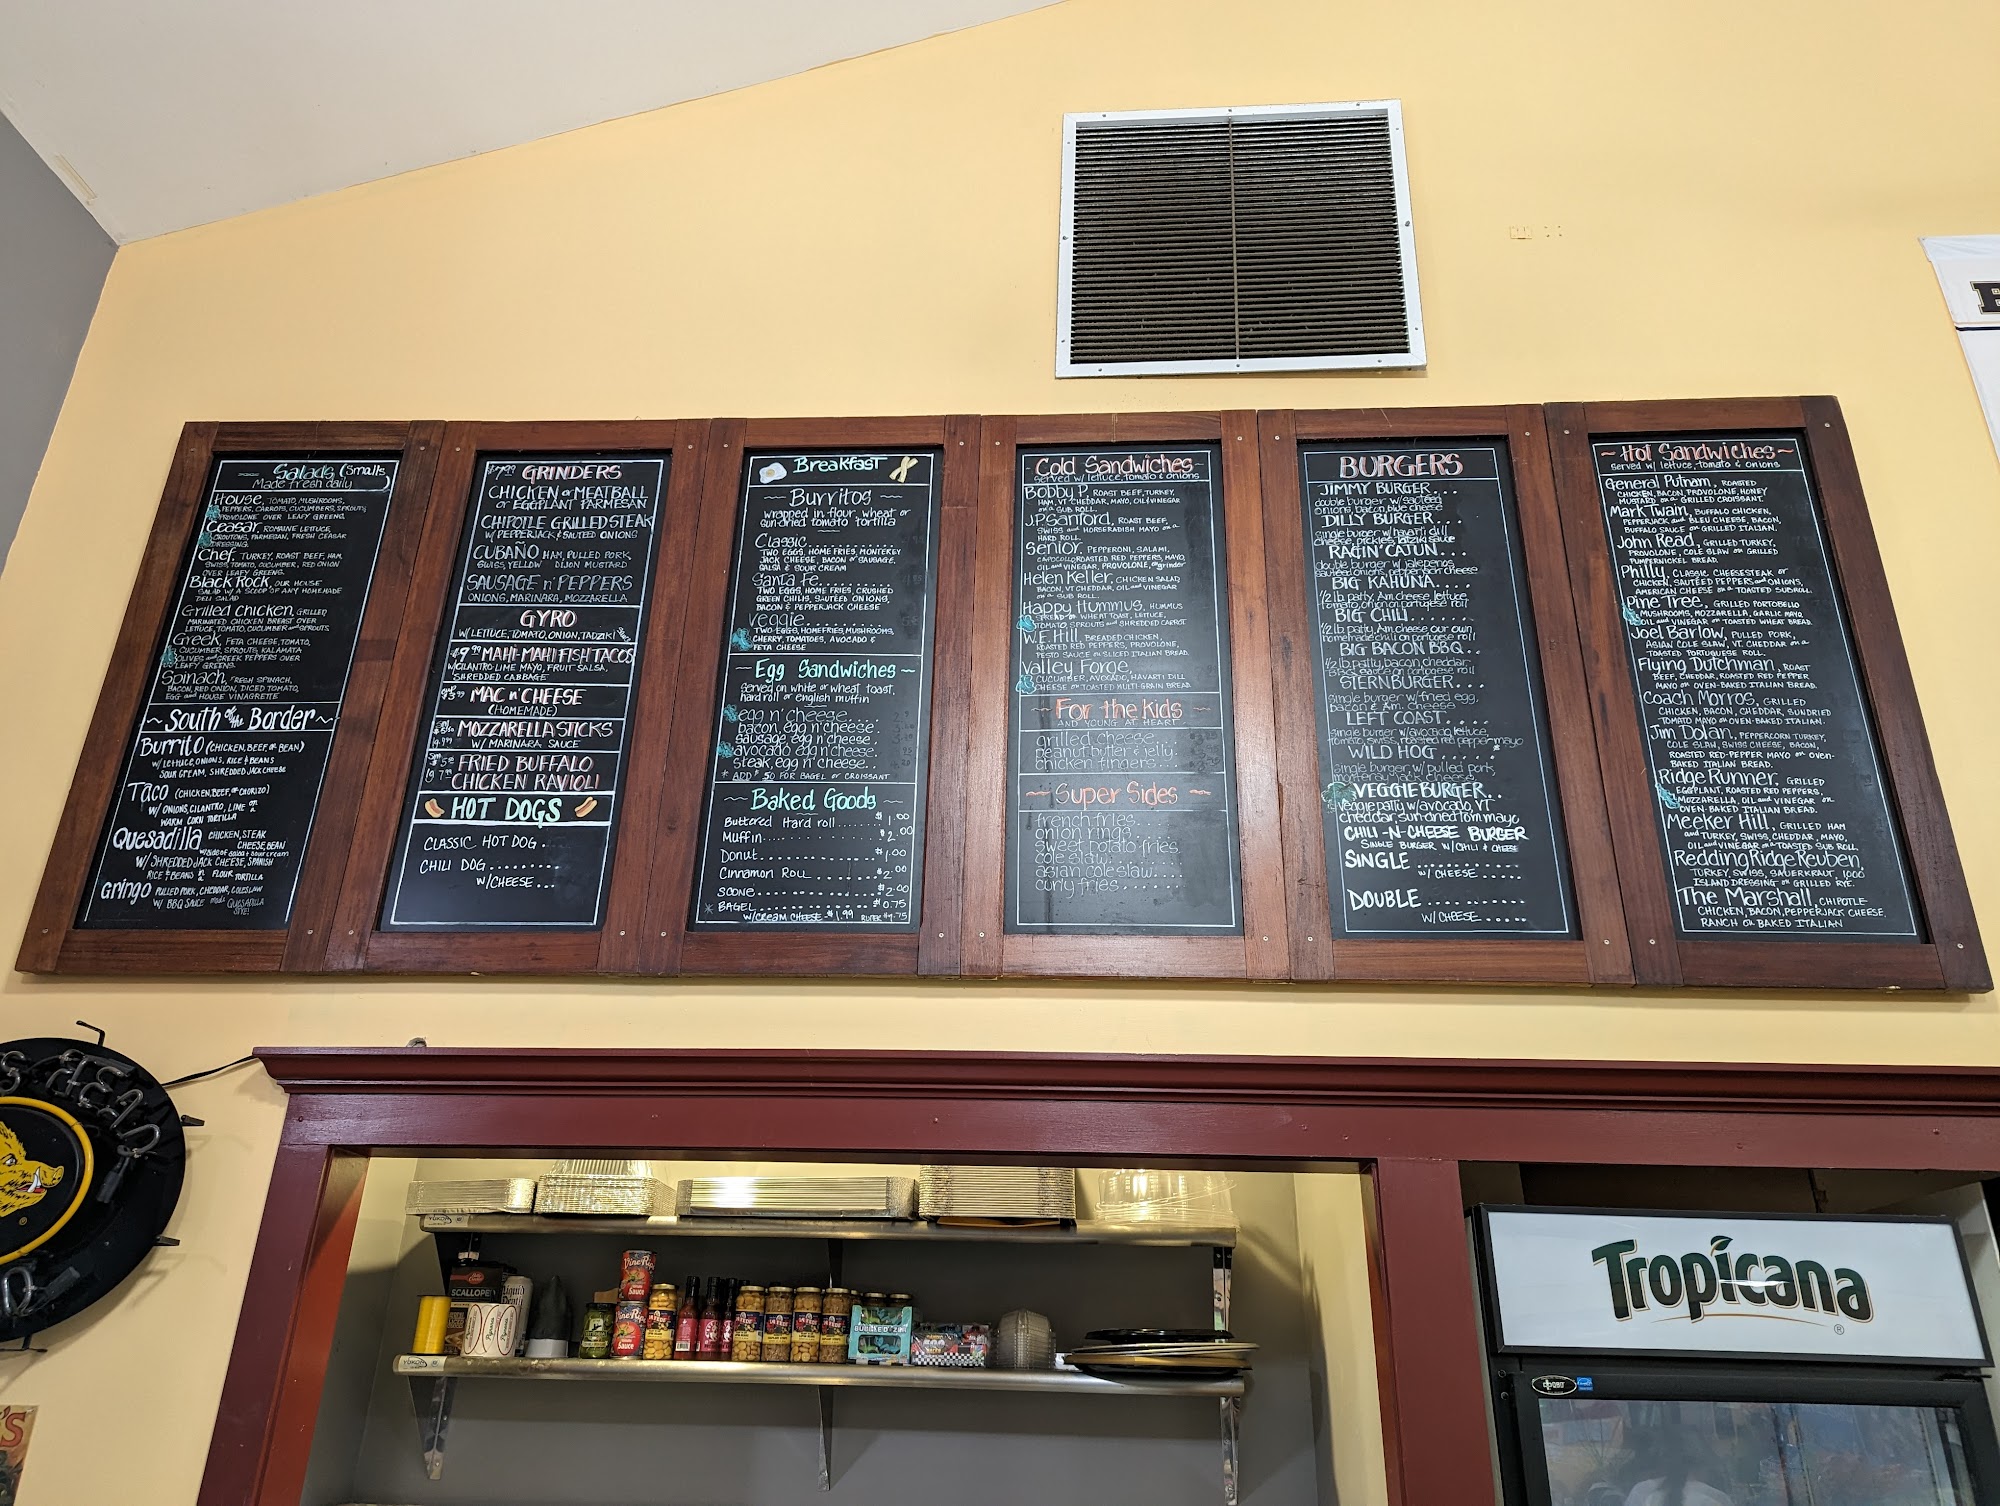 Salads (Smalls)
Made fresh daily
House, TOMATO, MUSHROOMS,
PEPPERS, CARROTS, CUCUMBERS, SPROUTS
PROVOLONE OVER LEAFY GREENS.
Ceasar, ROMAINE LETTUCE,
CROUTONS, PARMESAN, FRESH CEASAR
DRESSING.
Chef, TURKEY, ROAST BEEF, HAM,
SWISS, TOMATO, CUCUMBER, RED ONION
OVER LEAFY GREENS.
Black Rock, OUR HOUSE
SALAD W/ A SCOOP OF ANY HOMEMADE
DELI SALAD
Grilled Chicken, GRILLED
MARINATED CHICKEN BREAST OVER
LETTUCE, TOMATO, CUCUMBER and SPROUTS.
Greek, FETA CHEESE, TOMATO,
CUCUMBER, SPROUTS, KALAMATA
OLIVES and GREEK PEPPERS OVER
LEAFY GREENS.
Spinach, FRESH SPINACH,
BACON, RED ONION, DICED TOMATO,
EGG and HOUSE VINAGRETTE
~South of the Border~
Burrito (CHICKEN, BEEF, OR BEAN)
W/ LETTUCE, ONIONS, RICE & BEANS
SOUR CREAM, SHREDDED JACK CHEESE
Taco (CHICKEN, BEEF, OR CHORIZO)
W/ ONIONS, CILANTRO, LIME on a
WARM CORN TORTILLA
Quesadilla CHICKEN, STEAK
CHEESE, BEAN
w/side of salsa & sour cream
W/ SHREDDED JACK CHEESE, SPANISH
RICE & BEANS in a FLOUR TORTILLA
Gringo PULLED PORK, CHEDDAR, COLESLAW
W/ BBQ SAUCE made QUESADILLA
STYLE!
GRINDERS
CHICKEN or MEATBALL
or EGGPLANT PARMESAN
CHIPOTLE GRILLED STEAK
W/ PEPPERJACK & SAUTEED ONIONS
CUBAÑO HAM, PULLED PORK,
SWISS, YELLOW DIJON MUSTARD
SAUSAGE n' PEPPERS
ONIONS, MARINARA, MOZZARELLA
GYRO
W/ LETTUCE, TOMATO, ONION, TADZIKI
$9.99 MAHI-MAHI FISH TACOS
W/CILANTRO-LIME MAYO, FRUIT SALSA,
SHREDDED CABBAGE
MAC n' CHEESE
(HOMEMADE)
MOZZARELLA STICKS
W/ MARINARA SAUCE
FRIED BUFFALO
CHICKEN RAVIOLI
HOT DOGS
CLASSIC HOT DOG .
CHILI DOG ........
W/CHEESE ...
Breakfast
~ Burritos ~
wrapped in flour, wheat or
sun-dried tomato tortilla
Classic
TWO EGGS, HOME FRIES, MONTEREY
JACK CHEESE, BACON or SAUSAGE,
SALSA & SOUR CREAM
Santa Fe
TWO EGGS, HOME FRIES, CRUSHED
GREEN CHILIS, SAUTEED ONIONS,
BACON & PEPPERJACK CHEESE
Veggie
TWO EGGS, HOMEFRIES, MUSHROOMS,
CHERRY, TOMATOES, AVOCADO &
FETA CHEESE
~ Egg Sandwiches ~
Served on white or wheat toast,
hard roll or english muffin
egg n' cheese
bacon, egg n' cheese
sausage, egg n' cheese
avocado egg n' cheese
steak, egg n' cheese
* ADD $.50 FOR BAGEL or CROISSANT
~ Baked Goods ~
Buttered Hard roll $1.00
Muffin $2.00
Donut $1.00
Cinnamon Roll $2.00
Scone $2.00
BAGEL $0.75
W/CREAM CHEESE $1.99
Cold Sandwiches
served w/ lettuce, tomato & onions
Bobby P, ROAST BEEF, TURKEY,
HAM, VT CHEDDAR, MAYO, OIL & VINEGAR
on a SUB ROLL.
J.P. Sanford, ROAST BEEF,
SWISS and HORSERADISH MAYO on a
HARD ROLL.
Senior, PEPPERONI, SALAMI,
CAPOCOLLO, ROASTED RED PEPPERS, MAYO,
OIL and VINEGAR, PROVOLONE, on grinder
Helen Keller, CHICKEN SALAD
BACON, VT CHEDDAR, OIL and VINEGAR
on a SUB ROLL.
Happy Hummus, HUMMUS
SPREAD on WHEAT TOAST, LETTUCE,
TOMATO, SPROUTS and SHREDDED CARROT
W.E. Hill, BREADED CHICKEN,
ROASTED RED PEPPERS, PROVOLONE,
PESTO SAUCE on SLICED ITALIAN BREAD.
Valley Forge,
CUCUMBER, AVOCADO, HAVARTI DILL
CHEESE on TOASTED MULTI-GRAIN BREAD
For the Kids
AND YOUNG AT HEART
grilled cheese
peanut butter & jelly
chicken fingers
~ Super Sides ~
french fries
onion rings
sweet potato fries
cole slaw
asian coleslaw
curly fries
BURGERS
JIMMY BURGER....
double burger w/ sauteed
onions, bacon, blue cheese
DILLY BURGER....
single burger w/ havarti dill
cheese, pickles, tatziki sauce
RAGIN' CAJUN....
double burger w/ jalepenos,
sauteed onions, pepper jack cheese
BIG KAHUNA....
1/2 lb. patty, Am. cheese, lettuce,
tomato, onion on portugese roll
BIG CHILI......
1/2 lb. patty, Am. cheese, our own
homemade chili on portugese roll
BIG BACON BBQ..
1/2 lb. patty, bacon, cheddar,
STERNBURGER....
single burger w/fried egg,
bacon & Am. cheese
LEFT COAST.....
single burger w/ avocado, lettuce,
tomato, swiss, roasted red pepper mayo
WILD HOG.....
single burger w/ pulled pork,
monterey jack cheese
VEGGIE BURGER..
veggie patty w/avocado, VT
cheddar, sun-dried tom mayo
CHILI-N-CHEESE BURGER
SINGLE BURGER W/ CHILI & CHEESE
SINGLE
W/ CHEESE
DOUBLE
W/ CHEESE
~ Hot Sandwiches ~
served w/ lettuce, tomato & onions
General Putnam, ROASTED
CHICKEN, BACON, PROVOLONE, HONEY
MUSTARD on a GRILLED CROISSANT.
Mark Twain, BUFFALO CHICKEN,
PEPPERJACK and BLEU CHEESE, BACON,
BUFFALO SAUCE on GRILLED ITALIAN.
John Read, GRILLED TURKEY,
PROVOLONE, COLE SLAW on GRILLED
PUMPERNICKEL BREAD.
Philly, CLASSIC CHEESESTEAK or
CHICKEN, SAUTEED PEPPERS and ONIONS,
AMERICAN CHEESE on a TOASTED SUBROLL.
Pine Tree, GRILLED PORTOBELLO
MUSHROOMS, MOZZARELLA, GARLIC MAYO,
OIL and VINEGAR on TOASTED WHEAT BREAD.
Joel Barlow, PULLED PORK,
ASIAN COLE SLAW, VT. CHEDDAR on a
TOASTED PORTUGUESE ROLL.
Flying Dutchman, ROAST
BEEF, CHEDDAR, ROASTED RED PEPPER
MAYO on OVEN-BAKED ITALIAN BREAD.
Coach Morros, GRILLED
CHICKEN, BACON, CHEDDAR, SUNDRIED
TOMATO MAYO on OVEN-BAKED ITALIAN.
Jim Dolan, PEPPERCORN TURKEY,
COLE SLAW, SWISS CHEESE, BACON,
ROASTED RED-PEPPER MAYO on OVEN-
BAKED ITALIAN BREAD.
Ridge Runner, GRILLED
EGGPLANT, ROASTED RED PEPPERS,
MOZZARELLA, OIL and VINEGAR on
OVEN-BAKED ITALIAN BREAD.
Meeker Hill, GRILLED HAM
and TURKEY, SWISS, CHEDDAR, MAYO,
OIL and VINEGAR on TOASTED SUB ROLL.
Redding Ridge Reuben,
TURKEY, SWISS, SAUERKRAUT, 1000
ISLAND DRESSING on GRILLED RYE.
The Marshall, CHIPOTLE
CHICKEN, BACON, PEPPERJACK CHEESE,
RANCH on BAKED ITALIAN
SCALLOPED
Sauce
Tropicana